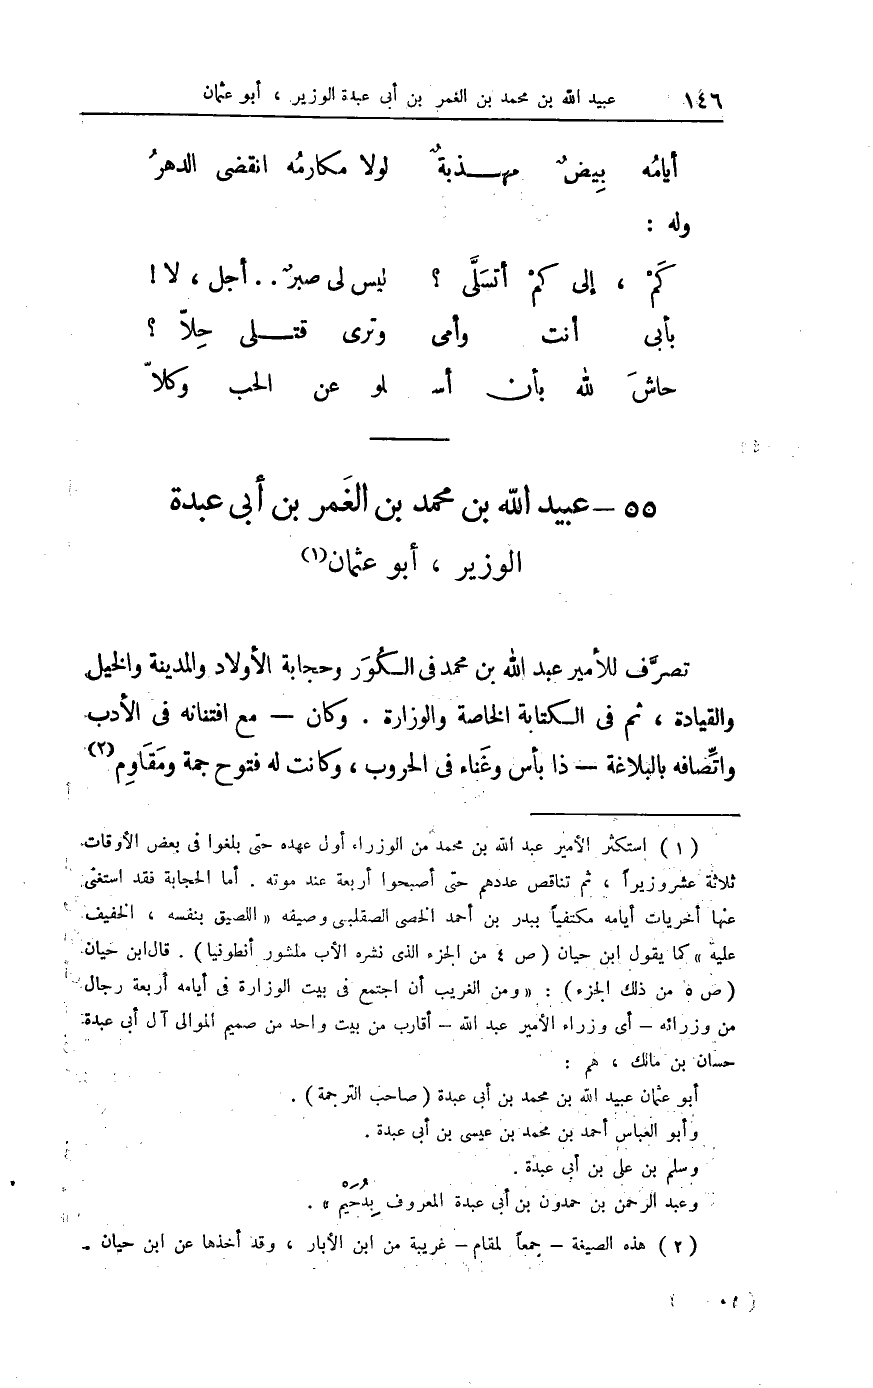 ١٤٦ عبيد الله بن محمد بن الغمر بن أبى عبدة الوزير ، أبو عثمان
أيامُه بِيضٌ مهـــذبةٌ لولا مكارمُه انقضى الدهرُ
وله :
كَمْ ، إلى كمْ أتسَلَّى ؟ ليس لى صبرٌ .. أجل ، لا !
بأبى أنت وأمى وترى قتـــلى حِلاًّ ؟
حاشَ لله بأن أسـ لو عن الحب وكلاَّ
٥٥ – عبيد الله بن محمد بن الغَمر بن أبى عبدة
الوزير ، أبو عثمان(١)
تصرَّف للأمير عبد الله بن محمد فى الـكُوَر وحجابة الأولاد والمدينة والخيل
والقيادة ، ثم فى الـكتابة الخاصة والوزارة . وكان – مع افتنانه فى الأدب
واتِّصافه بالبلاغة – ذا بأس وغَناء فى الحروب ، وكانت له فتوح جمة ومَقَاوِم(٢)
( ١ ) استكثر الأمير عبد الله بن محمد من الوزراء أول عهده حتى بلغوا فى بعض الأوقات
ثلاثة عشر وزيراً ، ثم تناقص عددهم حتى أصبحوا أربعة عند موته . أما الحجابة فقد استغنى
عنها أخريات أيامه مكتفياً ببدر بن أحمد الخصى الصقلبى وصيفه « اللصيق بنفسه ، الخفيف
عليه » كما يقول ابن حيان ( ص ٤ من الجزء الذى نشره الأب ملشور أنطونيا ) . قال ابن حيان
( ص ٥ من ذلك الجزء ) : « ومن الغريب أن اجتمع فى بيت الوزارة فى أيامه أربعة رجال
من وزرائه – أى وزراء الأمير عبد الله – أقارب من بيت واحد من صميم الموالى آل أبى عبدة
حسان بن مالك ، هم :
أبو عثمان عبيد الله بن محمد بن أبى عبدة ( صاحب الترجمة ) .
وأبو العباس أحمد بن محمد بن عيسى بن أبى عبدة .
وسلم بن على بن أبى عبدة .
وعبد الرحمن بن حمدون بن أبى عبدة المعروف بِدُحَيْم » .
( ٢ ) هذه الصيغة – جمعاً لمقام – غريبة من ابن الأبار ، وقد أخذها عن ابن حيان .